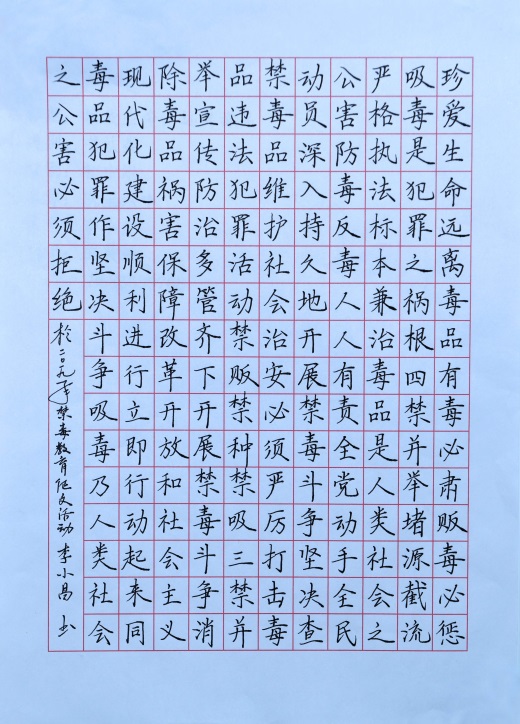 珍爱生命远离毒品有毒必肃贩毒必惩
吸毒是犯罪之祸根四禁并举堵源截流
严格执法标本兼治毒品是人类社会之
公害防毒反毒人人有责全党动手全民
动员深入持久地开展禁毒斗争坚决查
禁毒品维护社会治安必须严厉打击毒
品违法犯罪活动禁贩禁种禁吸三禁并
举宣传防治多管齐下开展禁毒斗争消
除毒品祸害保障改革开放和社会主义
现代化建设顺利进行立即行动起来同
毒品犯罪作坚决斗争吸毒乃人类社会
之公害必须拒绝 於二〇一九年禁毒教育征文活动 李小昌 书